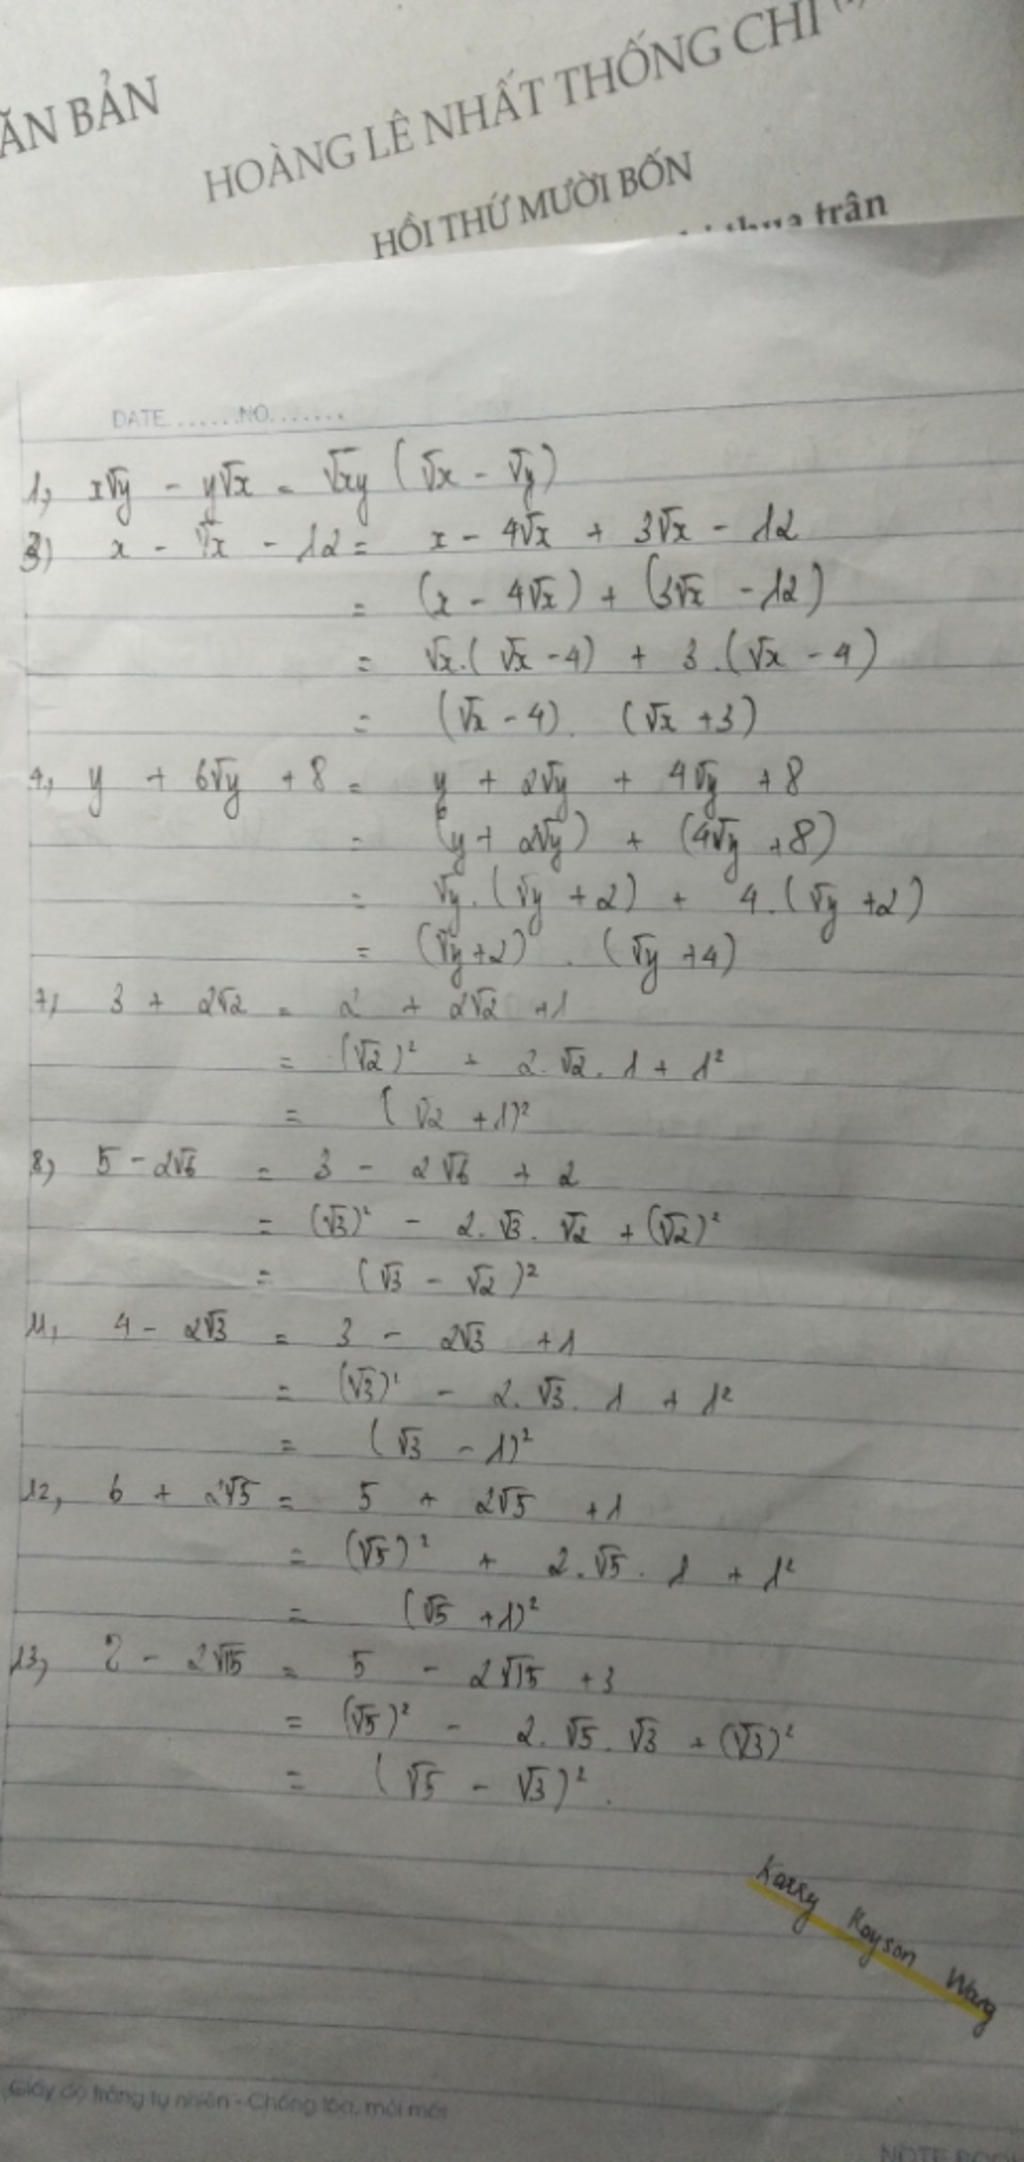 ĂN BẢN
HOÀNG LÊ NHẤT THỐNG CHÍ
HỒI THỨ MƯỜI BỐN
trân
DATE.......NO.......
1, x√y - y√x = √xy (√x - √y)
3) x - √x - 12 = x - 4√x + 3√x - 12
= (x - 4√x) + (3√x - 12)
= √x.(√x - 4) + 3.(√x - 4)
= (√x - 4). (√x + 3)
4, y + 6√y + 8 = y + 2√y + 4√y + 8
= (y + 2√y) + (4√y + 8)
= √y.(√y + 2) + 4.(√y + 2)
= (√y + 2) . (√y + 4)
7, 3 + 2√2 = 2 + 2√2 + 1
= (√2)² + 2.√2.1 + 1²
= (√2 + 1)²
8, 5 - 2√6 = 3 - 2√6 + 2
= (√3)² - 2.√3.√2 + (√2)²
= (√3 - √2)²
11, 4 - 2√3 = 3 - 2√3 + 1
= (√3)² - 2.√3.1 + 1²
= (√3 - 1)²
12, 6 + 2√5 = 5 + 2√5 + 1
= (√5)² + 2.√5.1 + 1²
= (√5 + 1)²
13, 8 - 2√15 = 5 - 2√15 + 3
= (√5)² - 2.√5.√3 + (√3)²
= (√5 - √3)².
Karry Royson Wang
Giấy có trắng tự nhiên - Chống lóa, mỏi mắt
NOTE BOOK